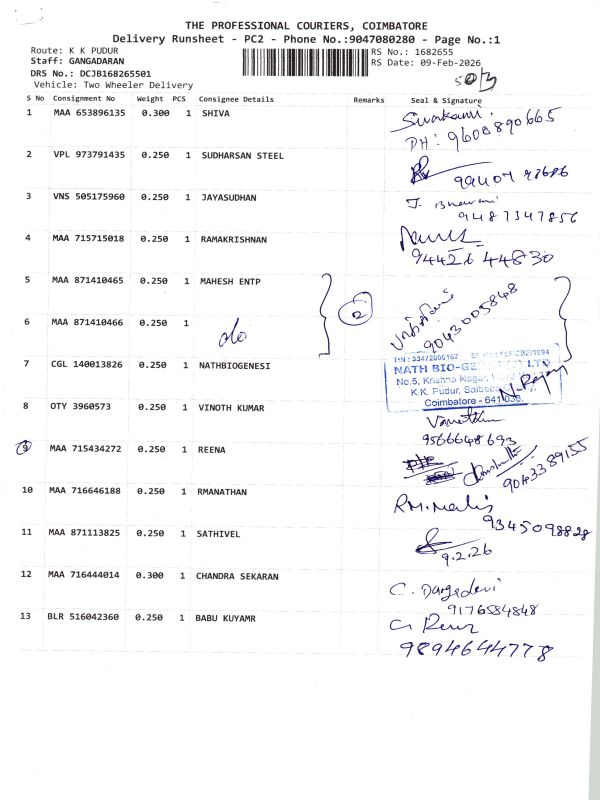 THE PROFESSIONAL COURIERS, COIMBATORE
Delivery Runsheet - PC2 - Phone No.:9047080280 - Page No.:1
Route: K K PUDUR
RS No.: 1682655
Staff: GANGADARAN
RS Date: 09-Feb-2026
DRS No.: DCJB168265501
Vehicle: Two Wheeler Delivery
S No Consignment No Weight PCS Consignee Details Remarks Seal & Signature
1 MAA 653896135 0.300 1 SHIVA
PH: 9600890665
2 VPL 973791435 0.250 1 SUDHARSAN STEEL
3 VNS 505175960 0.250 1 JAYASUDHAN
9487347856
4 MAA 715715018 0.250 1 RAMAKRISHNAN
94426 44830
5 MAA 871410465 0.250 1 MAHESH ENTP
2
9043005848
6 MAA 871410466 0.250 1 do
7 CGL 140013826 0.250 1 NATHBIOGENESI
NATH BIO-GE LTD
No.5, Krishna Nagar,
K.K. Pudur,
Coimbatore - 641 038.
8 OTY 3960573 0.250 1 VINOTH KUMAR
9566648693
9 MAA 715434272 0.250 1 REENA
9043389155
10 MAA 716646188 0.250 1 RMANATHAN
9345098828
11 MAA 871113825 0.250 1 SATHIVEL
9.2.26
12 MAA 716444014 0.300 1 CHANDRA SEKARAN
9176584848
13 BLR 516042360 0.250 1 BABU KUYAMR
9894644778